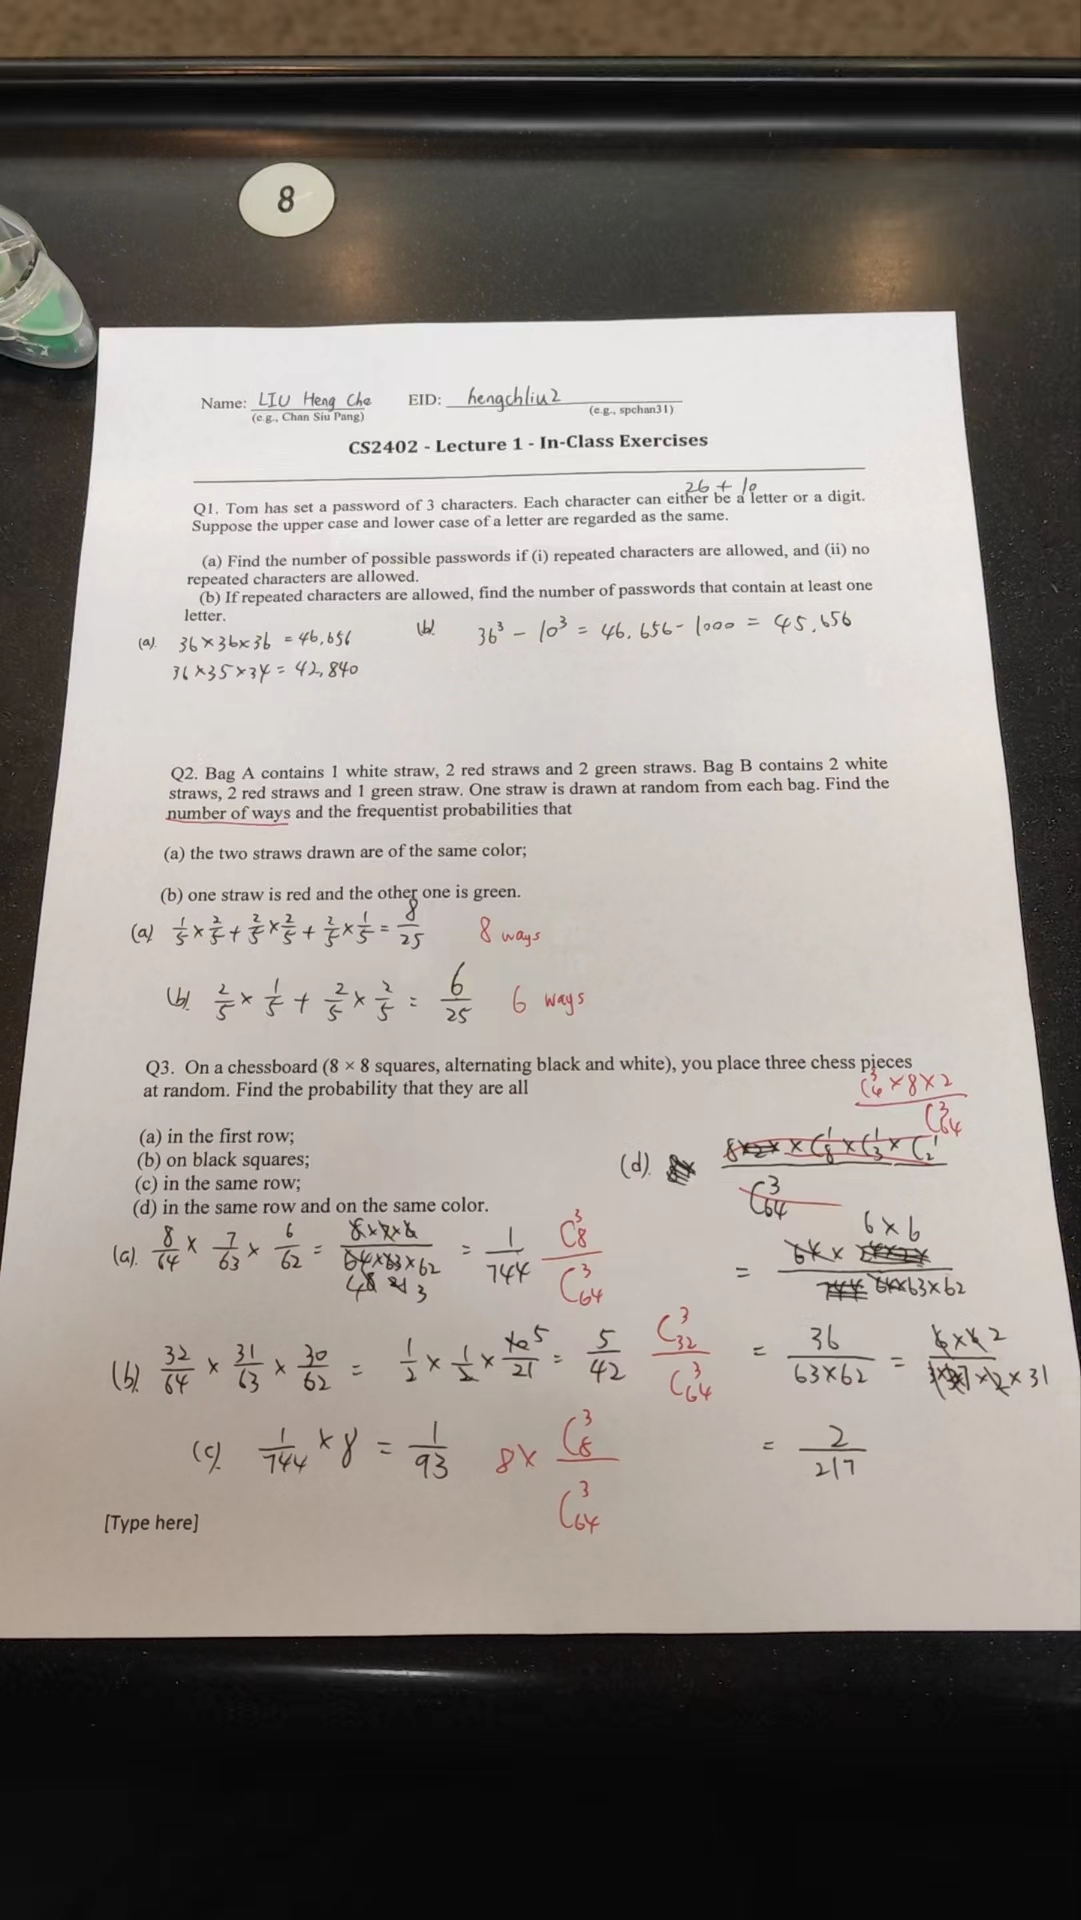 8
Name: LIU Heng Che EID: hengchliu2
(e.g., Chan Siu Pang) (e.g., spchan31)
CS2402 - Lecture 1 - In-Class Exercises
26 + 10
Q1. Tom has set a password of 3 characters. Each character can either be a letter or a digit.
Suppose the upper case and lower case of a letter are regarded as the same.
(a) Find the number of possible passwords if (i) repeated characters are allowed, and (ii) no
repeated characters are allowed.
(b) If repeated characters are allowed, find the number of passwords that contain at least one
letter.
(a). 36×36×36 = 46,656
36×35×34 = 42,840
(b). 36³ - 10³ = 46,656 - 1000 = 45,656
Q2. Bag A contains 1 white straw, 2 red straws and 2 green straws. Bag B contains 2 white
straws, 2 red straws and 1 green straw. One straw is drawn at random from each bag. Find the
number of ways and the frequentist probabilities that
(a) the two straws drawn are of the same color;
(b) one straw is red and the other one is green.
(a) 1/5 × 2/5 + 2/5 × 2/5 + 2/5 × 1/5 = 8/25 8 ways
(b). 2/5 × 1/5 + 2/5 × 2/5 = 6/25 6 ways
Q3. On a chessboard (8 × 8 squares, alternating black and white), you place three chess pieces
at random. Find the probability that they are all
(a) in the first row;
(b) on black squares;
(c) in the same row;
(d) in the same row and on the same color.
(a). 8/64 × 7/63 × 6/62 = 8×7×6/64×63×62 = 1/744 C³₈/C³₆₄
(b). 32/64 × 31/63 × 30/62 = 1/2 × 1/2 × 10/21 = 5/42 C³₃₂/C³₆₄
(c). 1/744 × 8 = 1/93 8 × C³₈/C³₆₄
(d).
×8×2/C³₆₄
= 6×6/63×62
= 36/63×62 =
= 2/217
[Type here]